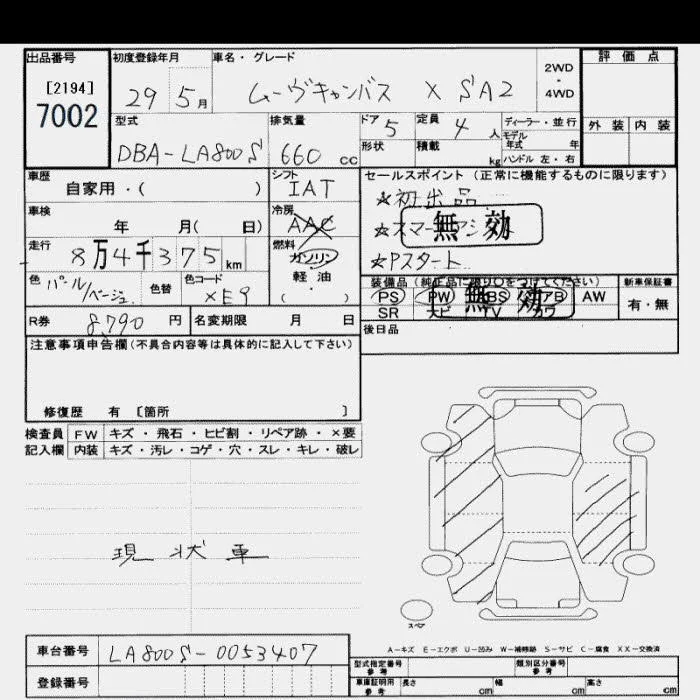 出品番号 初度登録年月 車名・グレード 評価点
[2194] 2WD・4WD
7002 29 5月 ムーヴキャンバス X SA2
型式 排気量 ドア 5 定員 4人 ディーラー・並行 外装 内装
モデル年式 年
DBA-LA800S 660cc 形状 積載 kg ハンドル 左・右
車歴 シフト セールスポイント (正常に機能するものに限ります)
自家用・( ) IAT ☆初出品
車検 冷房 ☆スマートアシスト 無効
年 月( 日) AAC
走行 8万4千375km 燃料 ガソリン ☆Pスタート
軽油
( )
色 パール/ベージュ 色替 色コード XE9 装備品 (純正品に限り○をつけてください) 新車保証書
PS PW ABS アB AW 無効 有・無
SR ナビ TV カワ
R券 8,790円 名変期限 月 日 後日品
注意事項申告欄(不具合内容等は具体的に記入して下さい)
修復歴 有 [箇所 ]
検査員 FW キズ・飛石・ヒビ割・リペア跡・×要
記入欄 内装 キズ・汚レ・コゲ・穴・スレ・キレ・破レ
現状車
スペア
A-キズ E-エクボ U-凹み W-補修跡 S-サビ C-腐食 XX-交換済
車台番号 LA800S-0053407 型式指定番号 参考 類別区分番号 参考
登録番号 車庫証明用 参考 長さ cm 幅 cm 高さ cm